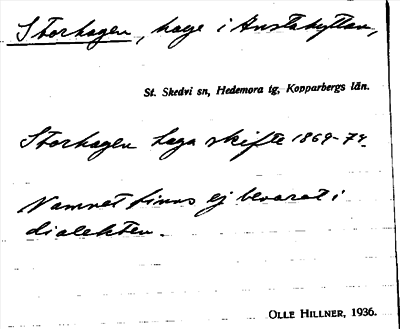 Storhagen, hage i Anstahyttan,
St. Skedvi sn, Hedemora tg, Kopparbergs län.
Storhagen Laga skifte 1869-74.
Namnet finns ej bevarat i
dialekten.
OLLE HILLNER, 1936.